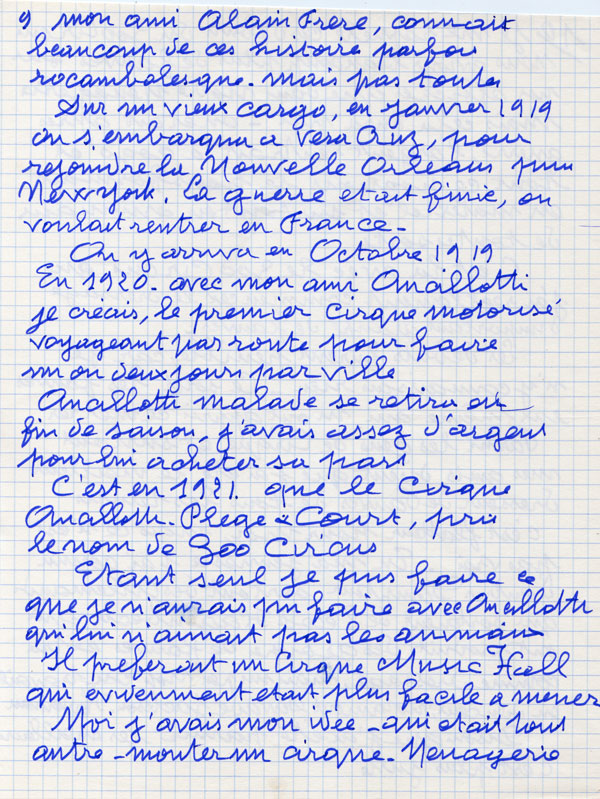 9) mon ami Alain Frere, connait
beaucoup de ces histoire parfois
rocambolesque. mais pas toutes
Sur un vieux cargo, en janvier 1919
on s'embarqua a Vera Cruz, pour
rejoindre la Nouvelle Orleans puis
New York. La guerre etait finie, on
voulait rentrer en France -
On y arriva en Octobre 1919
En 1920 - avec mon ami Ancillotti
je créais, le premier Cirque motorisé
voyageant par route pour faire
un ou deux jours par ville
Ancillotti malade se retira en
fin de saison, j'avais assez d'argent
pour lui acheter sa part
C'est en 1921. que le Cirque
Ancillotti - Plege & Court, pris
le nom de Zoo Circus
Etant seul je pus faire ce
que je n'aurais pu faire avec Ancillotti
qui lui n'aimait pas les animaux
Il preferait un Cirque Music Hall
qui evidemment etait plus facile a mener
Moi j'avais mon idée - qui etait tout
autre - monter un cirque - Menagerie